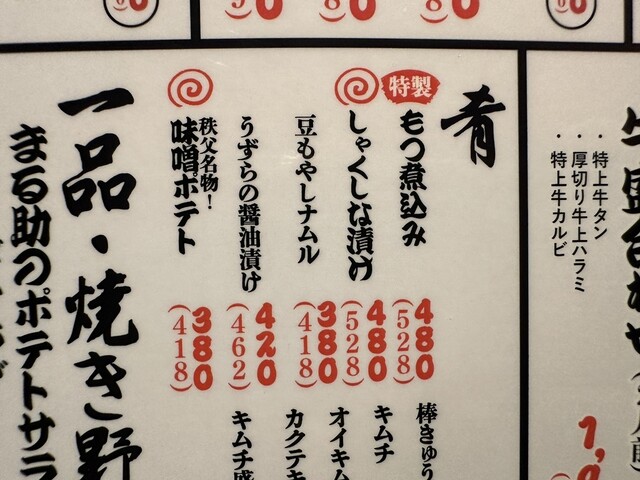 ・特上牛タン
・厚切り牛上ハラミ
・特上牛カルビ
肴
特製
もつ煮込み
480
(528)
しゃくしな漬け
480
(528)
豆もやしナムル
380
(418)
うずらの醤油漬け
420
(462)
秩父名物!
味噌ポテト
380
(418)
棒きゅう
キムチ
オイキム
カクテキ
キムチ盛
一品・焼き野
まる助のポテトサラ